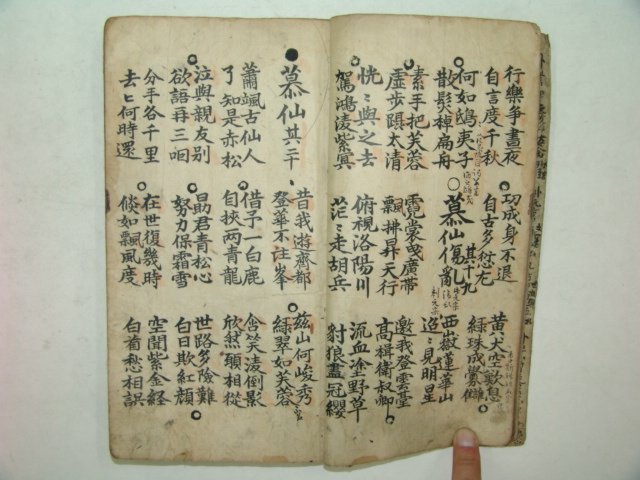 行樂爭晝夜 功成身不退 黃犬空歎息
自言度千秋 自古多愆尤 綠珠成釁讎
何如鴟夷子
散髮棹扁舟
○慕仙傷亂 其十九
西嶽蓮華山
迢〻見明星
素手把芙蓉 霓裳曳廣帶 邀我登雲臺
虛步躡太清 飄拂昇天行 高揖衛叔卿
恍〻與之去 俯視洛陽川 流血塗野草
駕鴻凌紫冥 茫〻走胡兵 豺狼盡冠纓
慕仙其二十
昔我遊齊都 茲山何峻秀
登華不注峯 綠翠如芙蓉
蕭颯古仙人 借予一白鹿 含笑凌倒影
了知是赤松 自挾兩青龍 欣然願相從
泣與親友別 勗君青松心 世路多險難
欲語再三咽 努力保霜雪 白日欺紅顔
分手各千里 在世復幾時 空聞紫金經
去〻何時還 倏如飄風度 白首愁相誤